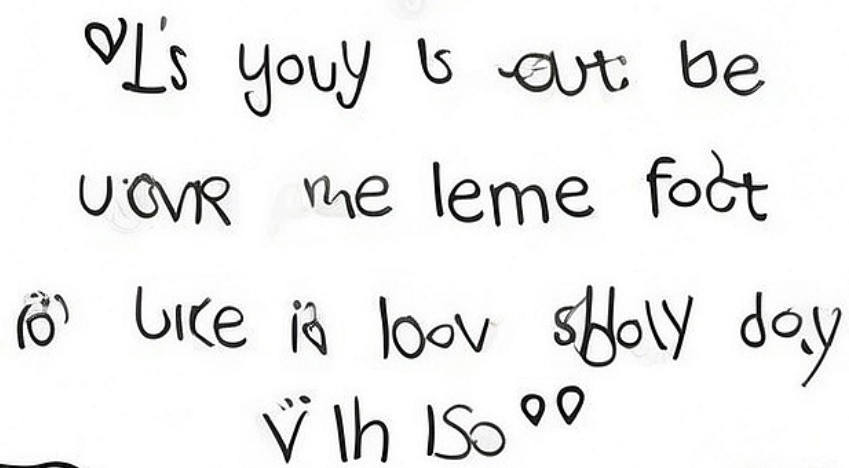 L's youy is out be
UOVR me leme foct
like is loov day
V Ih ISo